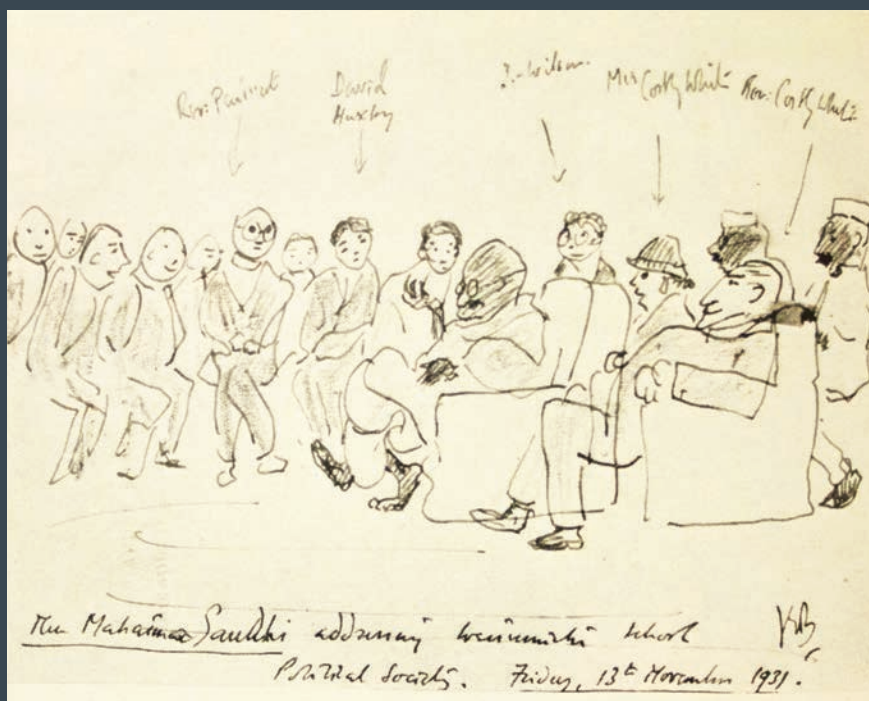 David
Huxley
Wilson
Mrs Costley White
Rev: Costley White
The Mahatma Gandhi addressing Westminster School
Political Society. Friday, 13th November 1931.